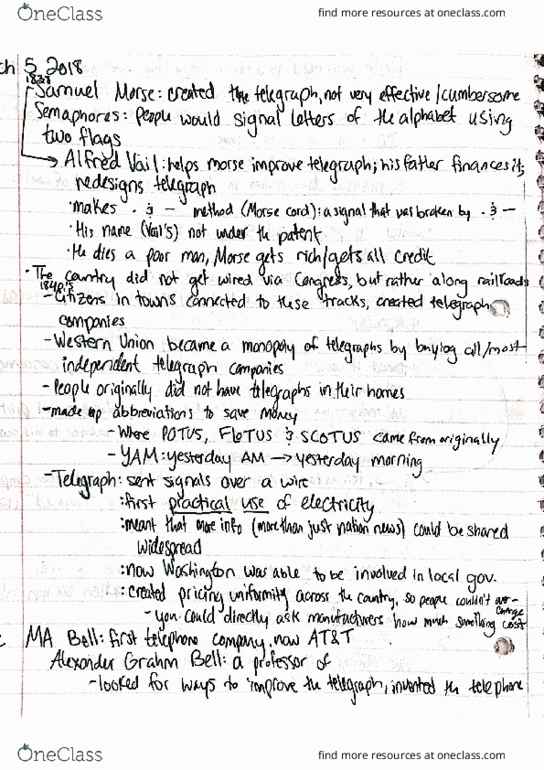 OneClass
find more resources at oneclass.com
ch 5, 2018
1838
Samuel Morse: created the telegraph, not very effective/cumbersome
Semaphores: people would signal letters of the alphabet using
two flags
Alfred Vail: helps morse improve telegraph; his father finances it;
redesigns telegraph
• makes . & – method (Morse cord): a signal that was broken by . & –
• His name (Vail's) not under the patent
• He dies a poor man, Morse gets rich/gets all credit
• The country did not get wired via Congress, but rather along railroads
1840's
- Citizens in towns connected to these tracks, created telegraph
companies
- Western Union became a monopoly of telegraphs by buying all/most
independent telegraph companies
- People originally did not have telegraphs in their homes
- made up abbreviations to save money
- Where POTUS, FLOTUS & SCOTUS came from originally
- YAM: yesterday AM → yesterday morning
- Telegraph: sent signals over a wire
: first practical use of electricity
: meant that more info (more than just nation news) could be shared
widespread
: now Washington was able to be involved in local gov.
: created pricing uniformity across the country, so people couldn't over-
charge
- you could directly ask manufacturers how much something cost
MA Bell: first telephone company, now AT&T
Alexander Grahm Bell: a professor of
- looked for ways to improve the telegraph, invented the telephone
OneClass
find more resources at oneclass.com